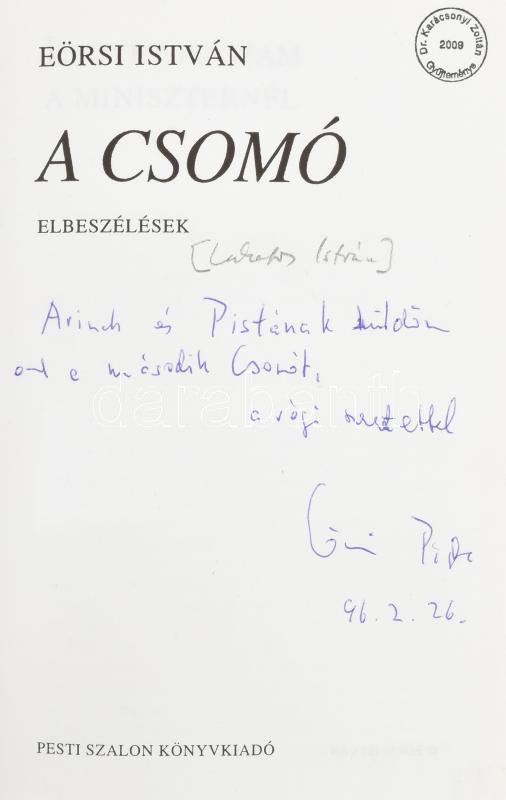 Dr. Karácsonyi Zoltán
2009
Gyűjteménye
EÖRSI ISTVÁN
A CSOMÓ
ELBESZÉLÉSEK
[Lakatos István]
és Pistának küldöm
a második Csomót,
a régi szeretettel
darabanth
Eörsi Pista
96. 2. 26.
PESTI SZALON KÖNYVKIADÓ